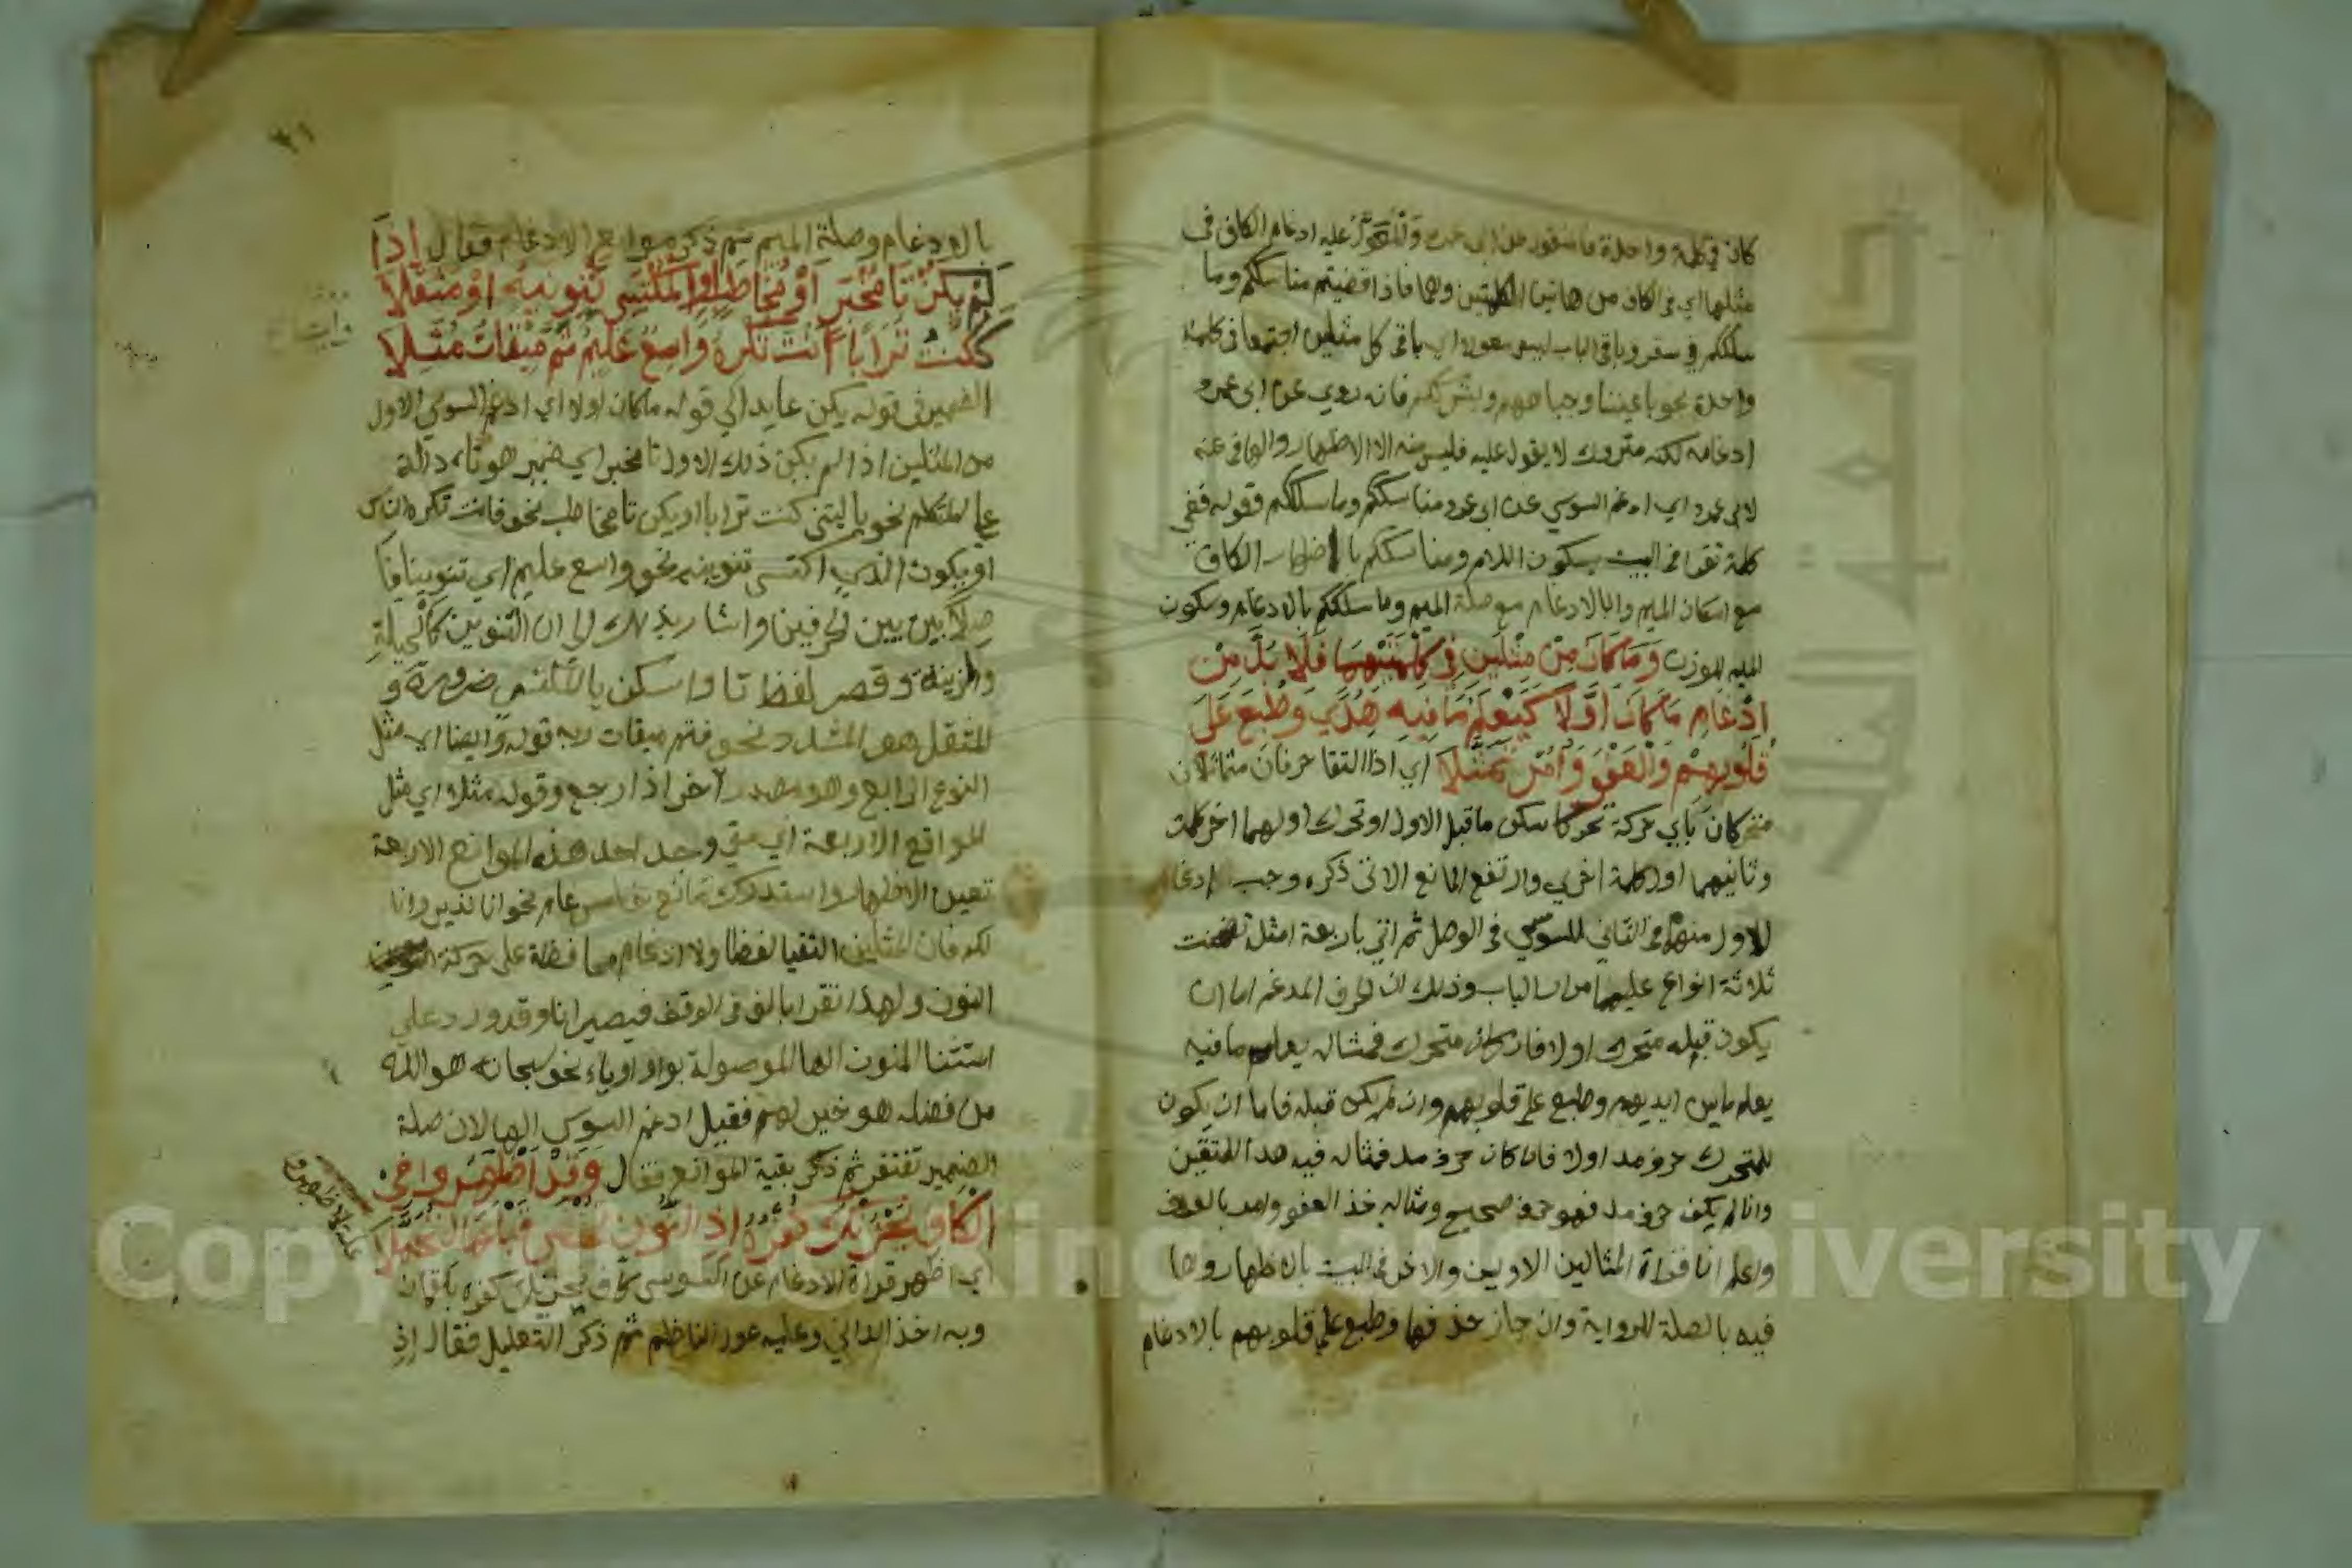 كان في كلمة واحدة فالمنقول عن ابي عمرو والمعول عليه ادغام الكاف في
مثلها اي في الكاف من هاتين الكلمتين وهما فاذا قضيتم مناسككم وما
سلككم في سقر وباقي الباب ليس معولا اي باقي كل مثلين اجتمعا في كلمة
واحدة نحو باعيننا وجباههم وبشرككم فانه روي عن ابي عمرو
ادغامه لكنه متروك لا يقول عليه فليس منه الا الاظهار والها في عنه
لابي عمرو اي ادغم السوسي عن ابي عمرو مناسككم وما سلككم وقوله ففي
كلمة تقرا في البيت بسكون اللام ومناسككم باظهار الكاف
مع اسكان الميم واما بالادغام مع صلة الميم وما سلككم بالادغام وسكون
الميم للوزن وَمَا كَانَ مِنْ مِثْلَيْنِ فِي كِلْمَتَيْهِمَا فَلَا بُدَّ مِنْ
ادْغَامِ مَا كَانَ اَوَّلَا كَيَعْلَمُ مَا فِيهِ هُدًى وَطُبِعَ عَلَى
قُلُوبِهِمْ وَالْعَفْوَ وَأْمُرْ تَمَثَّلَا اي اذا التقا حرفان متماثلان
متحركان باي حركة تحركا سكن ما قبل الاول او تحرك اولهما اخر كلمة
وثانيهما اول كلمة اخري وارتفع المانع الاتي ذكره وجب ادغام
الاول منهما في الثاني للسوسي في الوصل ثم اتي باربعة امثلة تضمنت
ثلاثة انواع عليها مدار الباب وذلك ان الحرف المدغم اما ان
يكون قبله متحرك اولا فان كان متحرك فمثاله يعلم ما فيه
يعلم ما بين ايديهم وطبع على قلوبهم وان لم يكن قبله فاما ان يكون
المتحرك حرف مد اولا فان كان حرف مد فمثاله فيه هدا للمتقين
وان لم يكن حرف مد فهو حرف صحيح ومثاله خذ العفو وامر بالعرف
واعلم انا قراة المثالين الاوبين والاخر في البيت بالاظهار وها
فيه بالصلة للرواية وان جاز حذفها وطبع على قلوبهم بالادغام
٣١
بالادغام وصلة الميم ثم ذكر موانع الادغام فقال اِذَا
لَمْ يَكُنْ تَا مُخْبِرٍ اَوْ مُخَاطَبٍ اَوِ الْمُكْتَسِي تَنْوِينِهِ اَوْ مُثَقَّلَا
كَكُنْتُ تُرَابًا اَنْتَ تُكْرِهُ وَاسِعٌ عَلِيمٌ ثَمَّ مِيقَاتُ مُثِّلَا
الضمير في قوله يكن عايد الي قوله ما كان اولا اي ادغم السوسي الاول
من المثلين اذا لم يكن ذلك الاول تا مخبر اي ضمير هو تاء دالة
على المتكلم نحو يا ليتني كنت ترابا او يكن تا مخاطب نحو فانت تكره الناس
او يكون الذي اكتسى تنوينه نحو واسع عليم اي تنوينا فا
صلا بين بين الحرفين واشار بذلك الى ان التنوين كالحيلة
والزينة وقصر لفظ تا واسكن يا المكتسي ضرورة و
المثقل هو المشدد نحو فتم ميقات ربه قوله وايضا اي مثل
النوع الرابع وهو مصدر آخر اذا رجع وقوله مثلا اي مثل
الموانع الاربعة اي متي وجد احد هذه الموانع الاربعة
تعين الاظهار واستدرك مانع خامس عام نحو انا نذير وانا
لكم فان المثلين التقيا لفظا ولا ادغام محافظة على حركة
النون ولهذا تقرا بالف في الوقف فيصير انا وقد ورد على
استثنا المنون الها الموصولة بواو او ياء نحو سبحانه هو الله
من فضله هو خير لهم فقيل ادغم السوسي الها لان صلة
الضمير تفتقر ثم ذكر بقية الموانع فقال وَقَدْ اَظْهَرُوا فِي
الْكَافِ يَحْزُنْكَ كُفْرُهُ اِذِ النُّونُ تُخْفَى قَبْلَهَا لِتُجَمَّلَا
اي اظهر قراة الادغام عن السوسي كاف يحزنك كفره بلقمان
وبه اخذ الداني وعليه عول الناظم ثم ذكر التعليل فقال اذ
Copyright © King Saud University